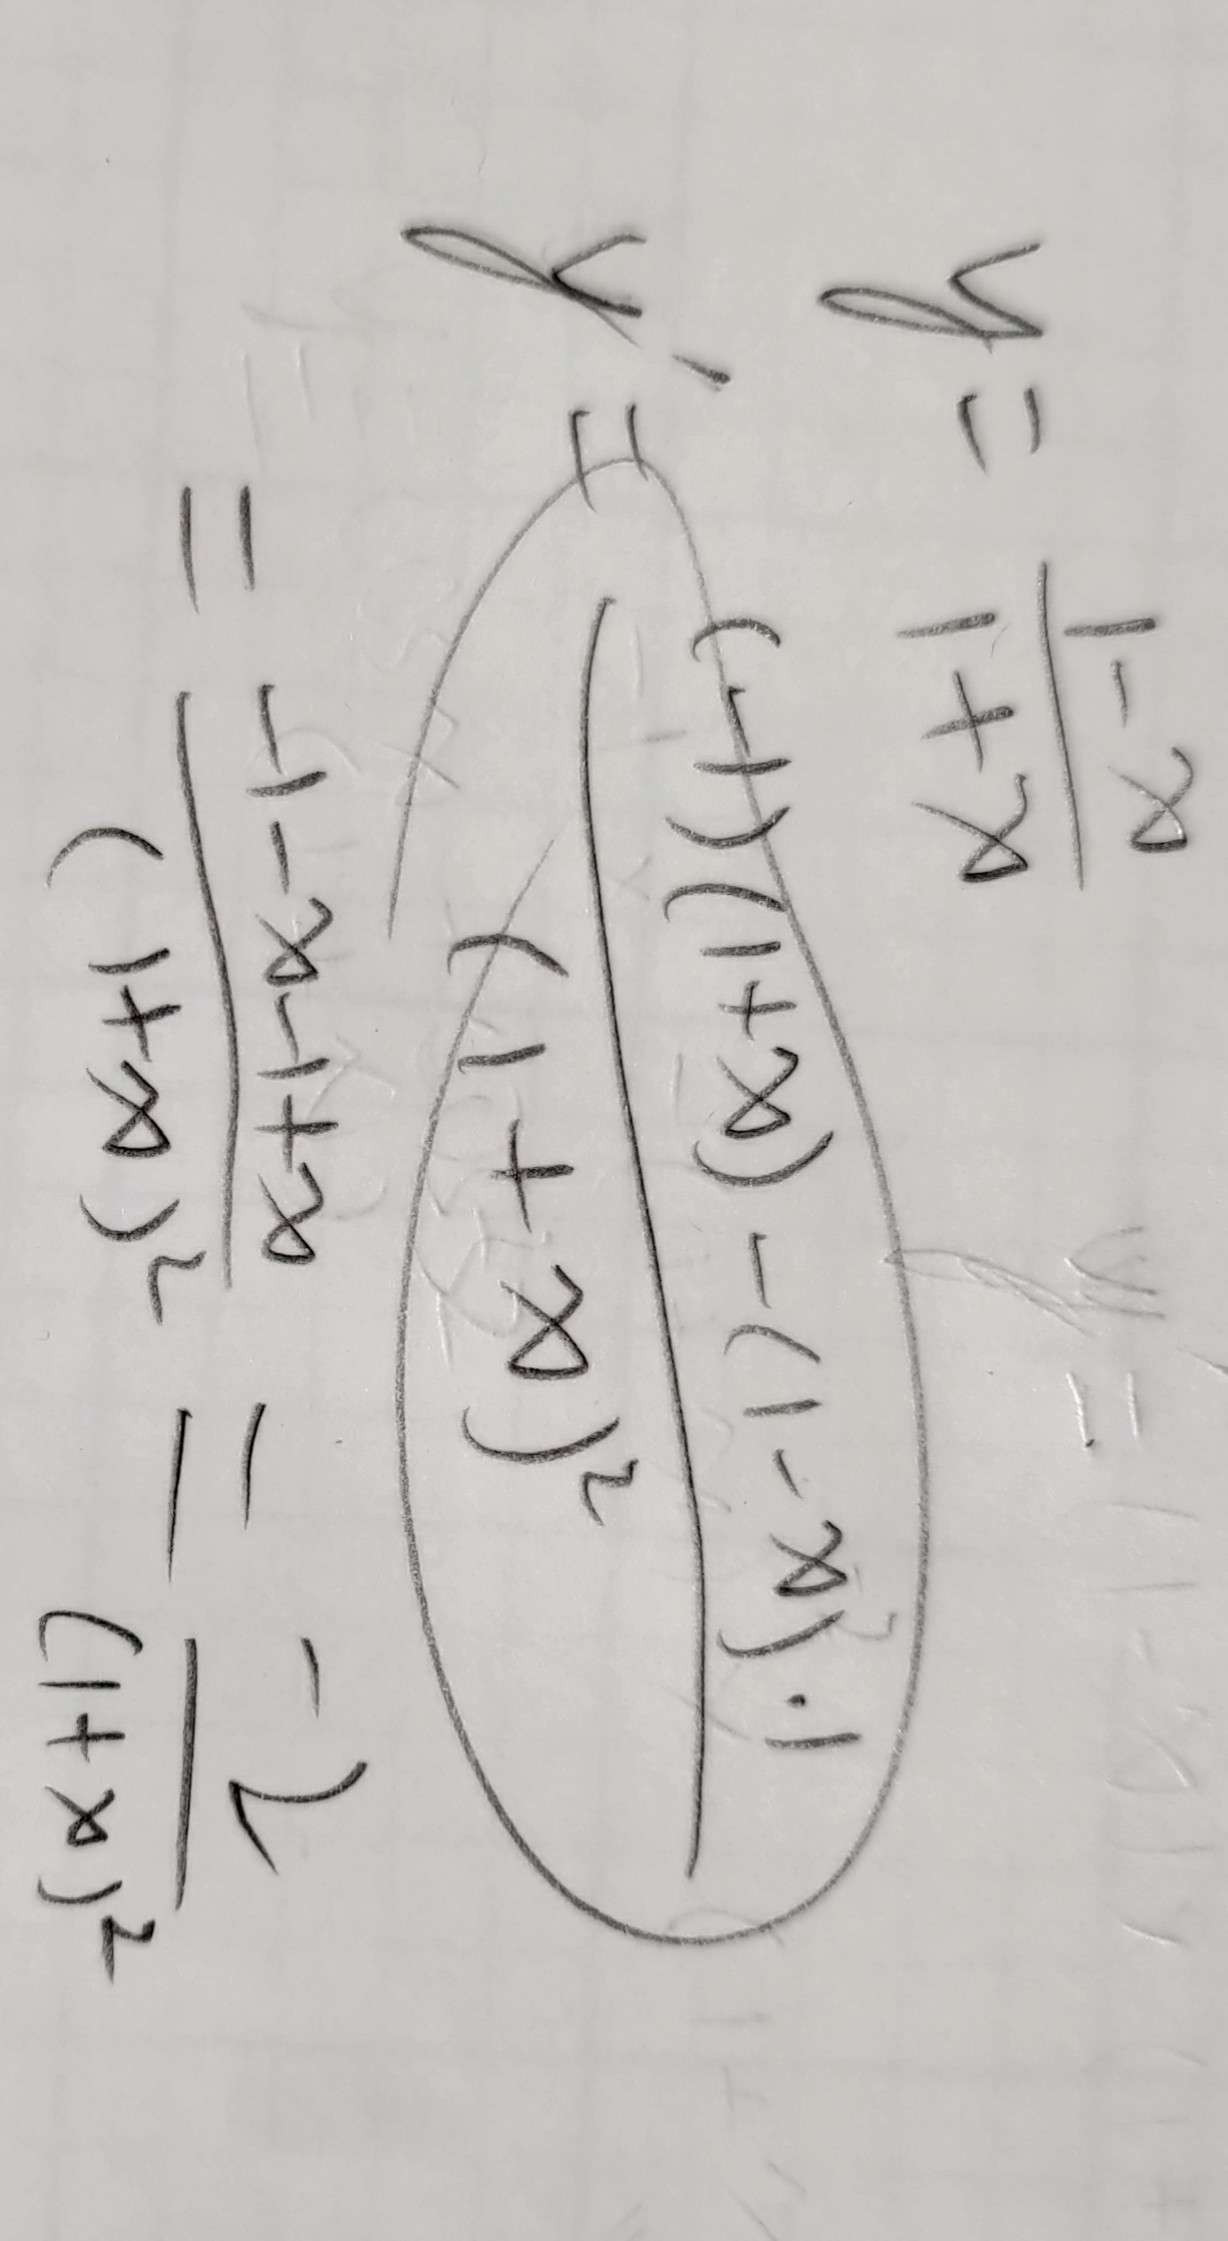 y = \frac{1-x}{1+x}
y' = \frac{(-1)(1+x)-(1-x)·1}{(1+x)^2}
= \frac{-1-x-1+x}{(1+x)^2} = \frac{-2}{(1+x)^2}